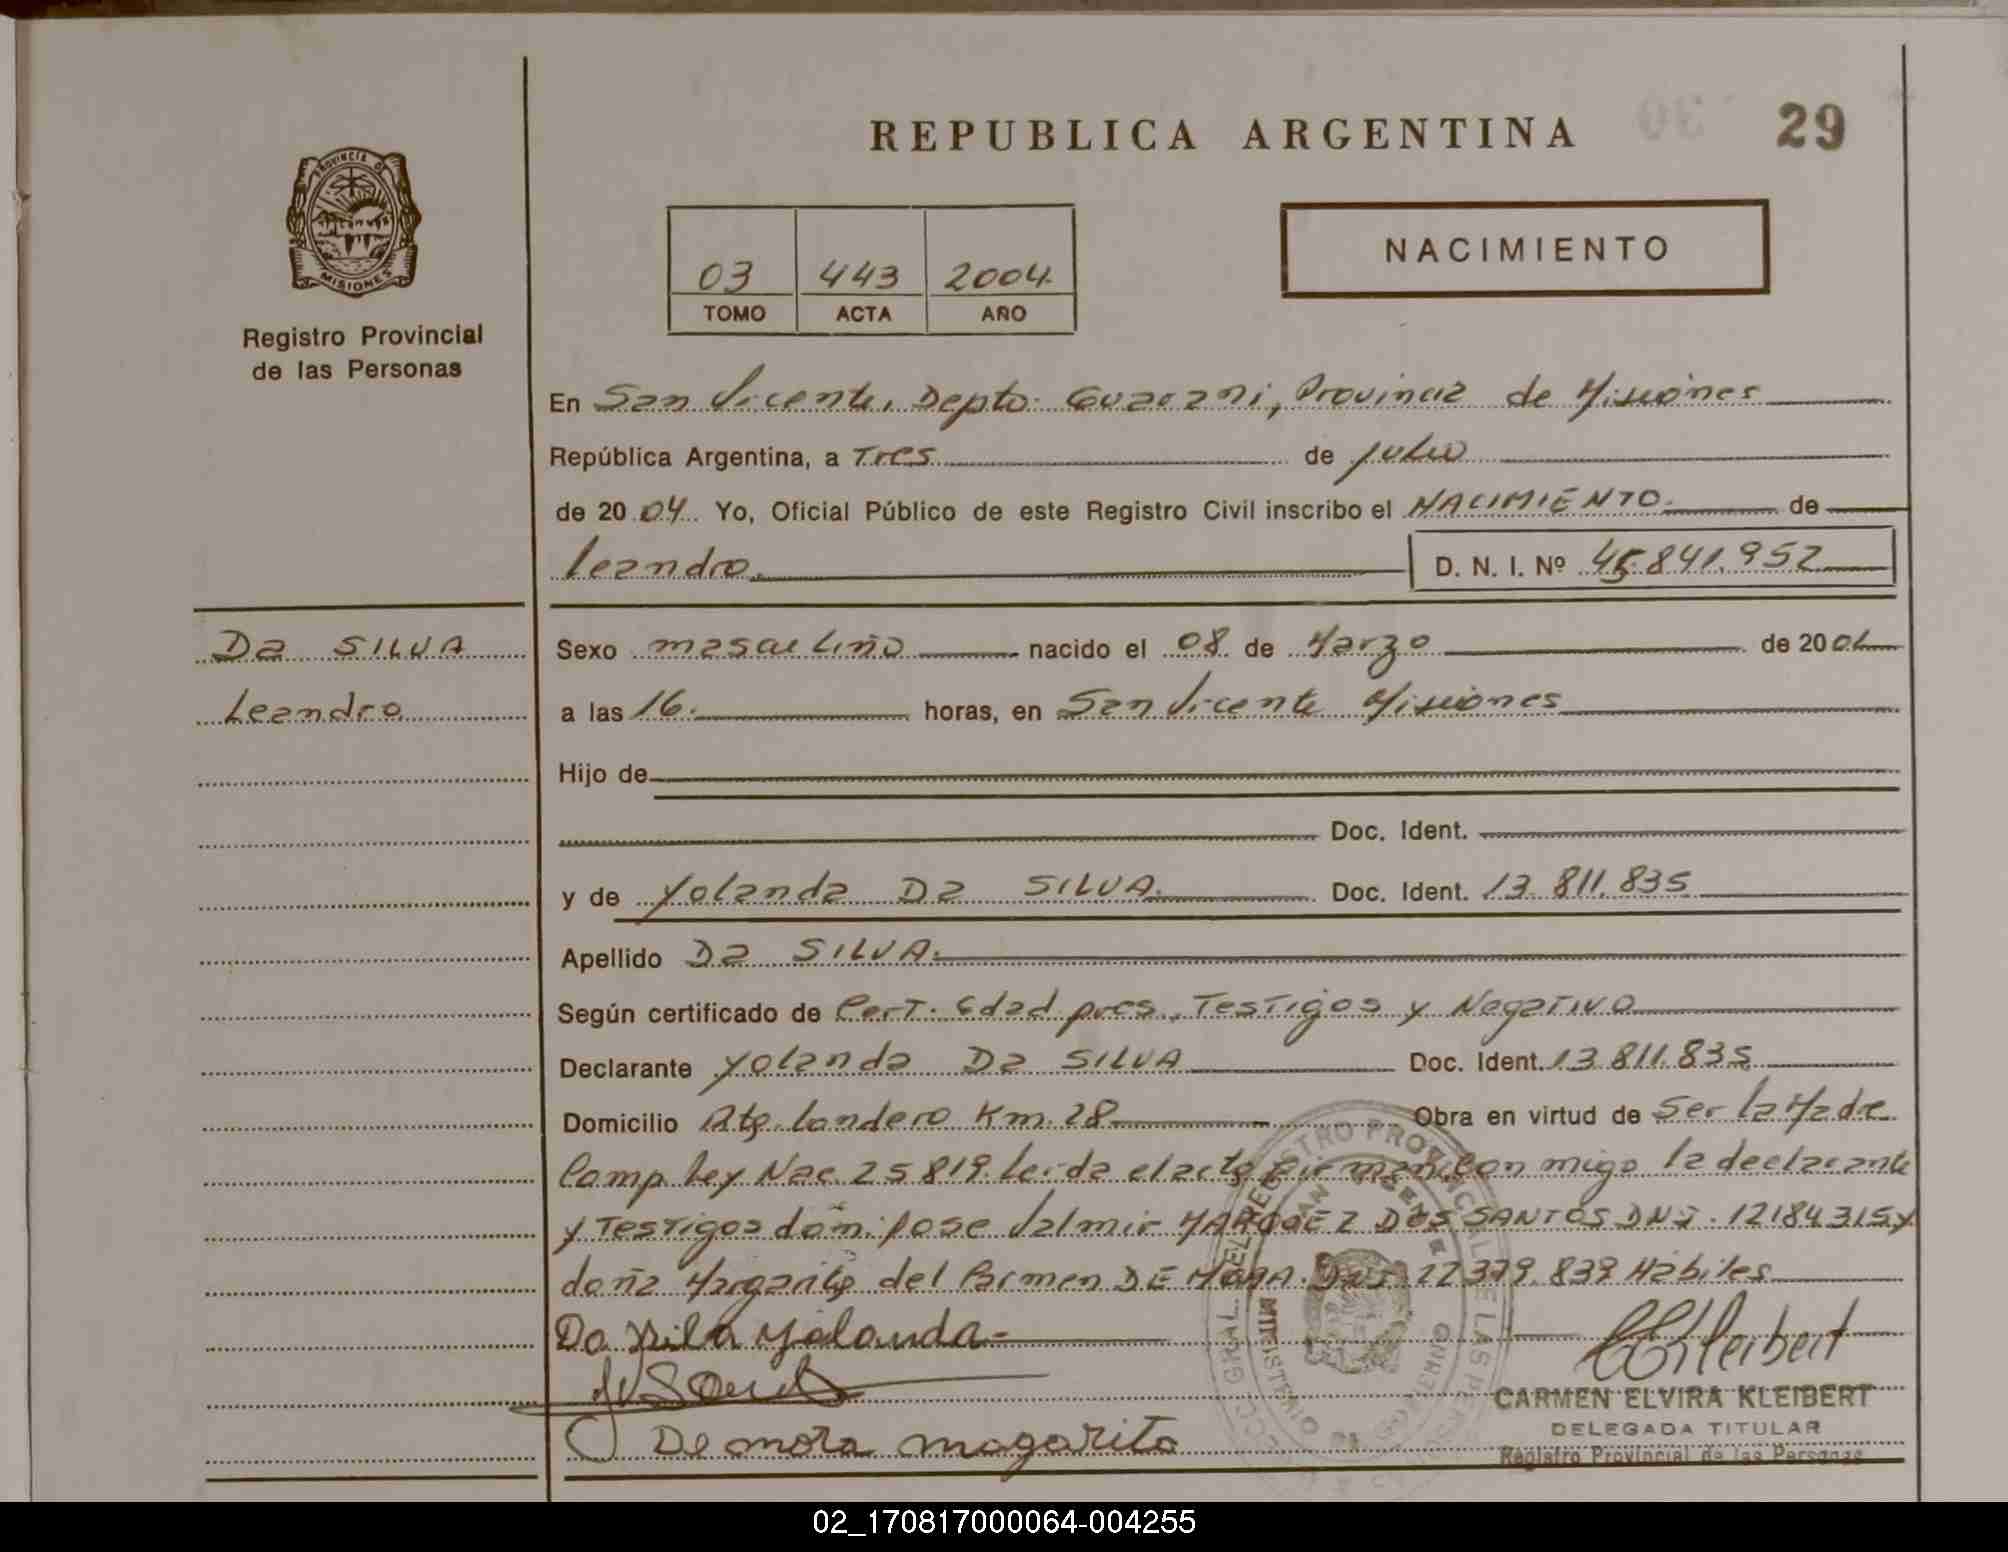 REPUBLICA ARGENTINA 29
PROVINCIA DE
MISIONES
Registro Provincial
de las Personas
03 443 2004
TOMO ACTA AÑO
NACIMIENTO
En San Vicente, Depto. Guarani, Provincia de Misiones
República Argentina, a Tres de julio
de 2004 Yo, Oficial Público de este Registro Civil inscribo el NACIMIENTO de
Leandro. D. N. I. Nº 45.841.952
Da SILVA
Leandro
Sexo masculino nacido el 08 de Marzo de 2004
a las 16. horas, en San Vicente Misiones
Hijo de
Doc. Ident.
y de Yolanda Da SILVA. Doc. Ident. 13.811.835
Apellido Da SILVA.
Según certificado de Cert. Edad pres. Testigos y Negativo
Declarante Yolanda Da SILVA Doc. Ident. 13.811.835
Domicilio Landero Km. 28 Obra en virtud de Ser la Madre
Comp. Ley Nac. 25819. Leida el acta firman conmigo la declarante
y Testigos don: Jose Valmir MARQUEZ DOS SANTOS DNI. 12184315 y
doña Margarita del Carmen DE MORA. DNI. 22.379.839 Habiles
Da Silva Yolanda
CKleibert
CARMEN ELVIRA KLEIBERT
DELEGADA TITULAR
Registro Provincial de las Personas
De mora magarita
02_170817000064-004255